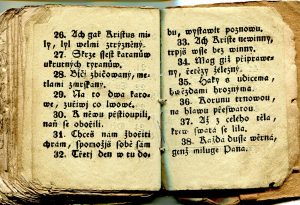 26. Ach gak Kristus mi-
ly, lyl welmi ztrýzněný.
27. Skrze ssest karanůw
ukrutných tyranůw.
28. Biči zbičowaný, me-
tlami zmrskaný.
29. Na to dwa kato-
we, zuřiwj co lwowé.
30. K němu přistoupili,
naň se obořili.
31. Chceš nám zbořiti
chrám, spomožiš sobě sám
32. Třetj den w tu do-
bu, wystawit poznowu.
33. Ach Kriste newinny,
trpjš wsse bez winny.
34. Mag giž připrawe-
ny, čerězy železny.
35. Háky s udicema,
hwězdami hroznýma.
36. Korunu trnowou,
na hlawu přesmutnou.
37. Až z celého těla,
krew swatá se lila.
38. Každá dusse wěrná,
genž miluge Pána.